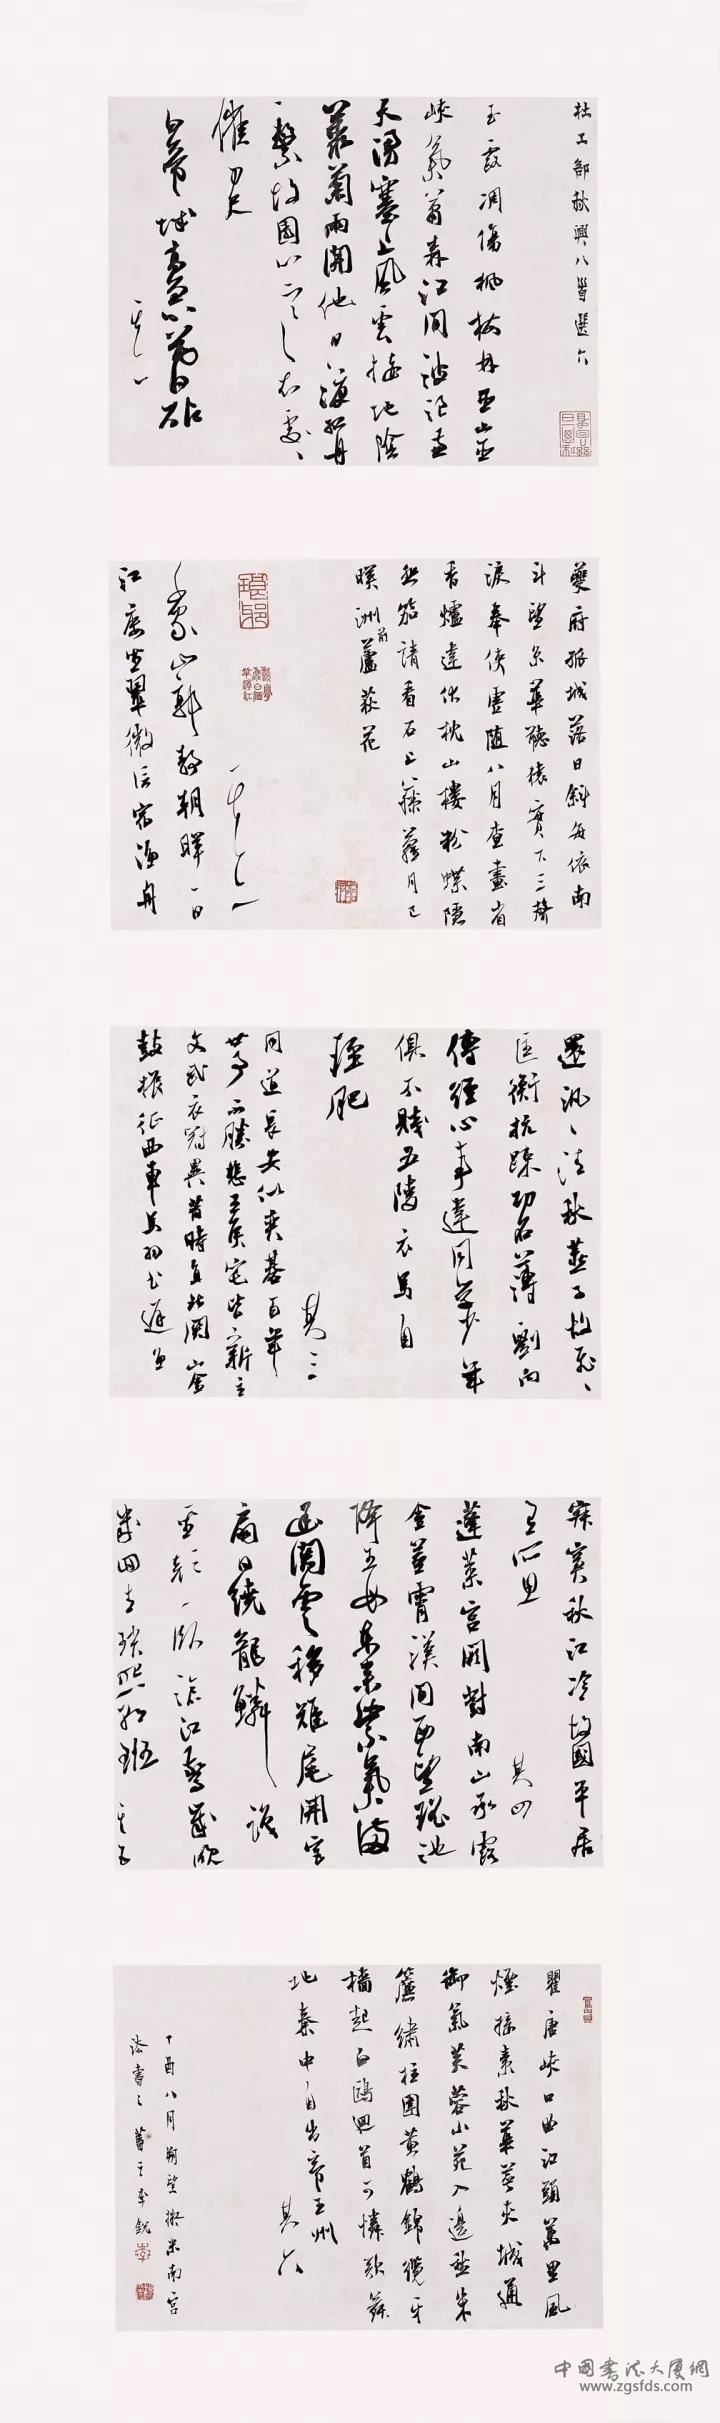 杜工部秋興八首選六
玉露凋傷楓樹林巫山巫
峽氣蕭森江間波浪兼
天湧塞上風雲接地陰
叢菊兩開他日淚孤舟
一繫故園心寒衣處、
催刀尺
白帝城高急暮砧
其一
夔府孤城落日斜每依南
斗望京華聽猿實下三聲
淚奉使虛隨八月查畫省
香爐違伏枕山樓粉蝶隱
悲笳請看石上藤蘿月已
映洲前蘆荻花
其二
千家山郭靜朝暉一日
江樓坐翠微信宿漁舟
還汎、清秋燕子故飛、
匡衡抗疏功名薄劉向
傳經心事違同學少年
俱不賤五陵衣馬自
輕肥
其三
聞道長安似奕碁百年
世事不勝悲王侯宅皆新主
文武衣冠異昔時直北關山金
鼓振征西車馬羽書遲魚
龍寂寞秋江冷故國平居
有所思
其四
蓬萊宮闕對南山承露
金莖霄漢間西望瑤池
降王母東來紫氣滿
函關雲移雉尾開宮
扇日繞龍鱗識
聖顏一臥滄江驚歲晚
幾回青瑣照朝班
其五
瞿唐峽口曲江頭萬里風
煙接素秋華萼夾城通
御氣芙蓉小苑入邊愁朱
簾繡柱圍黃鶴錦纜牙
檣起白鷗迴首可憐歌舞
地秦中自古帝王州
其六
丁酉八月朔望擬米南宮
法書之
中國書法大廈網
www.zgsfds.com